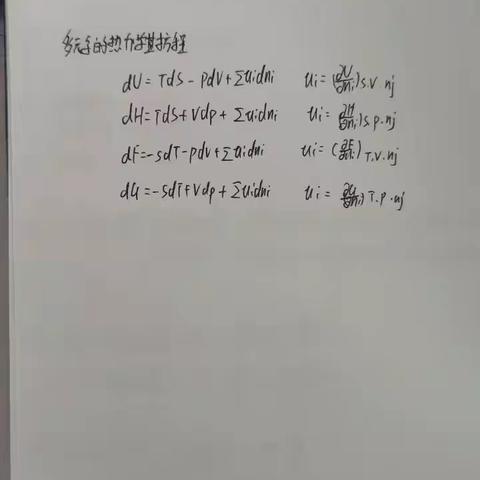 多元系的热力学基本方程
dU = TdS - pdV + Σuidni ui = (∂U/∂ni)S.V.nj
dH = TdS + Vdp + Σuidni ui = (∂H/∂ni)S.p.nj
dF = -SdT - pdV + Σuidni ui = (∂F/∂ni)T.V.nj
dG = -SdT + Vdp + Σuidni ui = (∂G/∂ni)T.P.nj